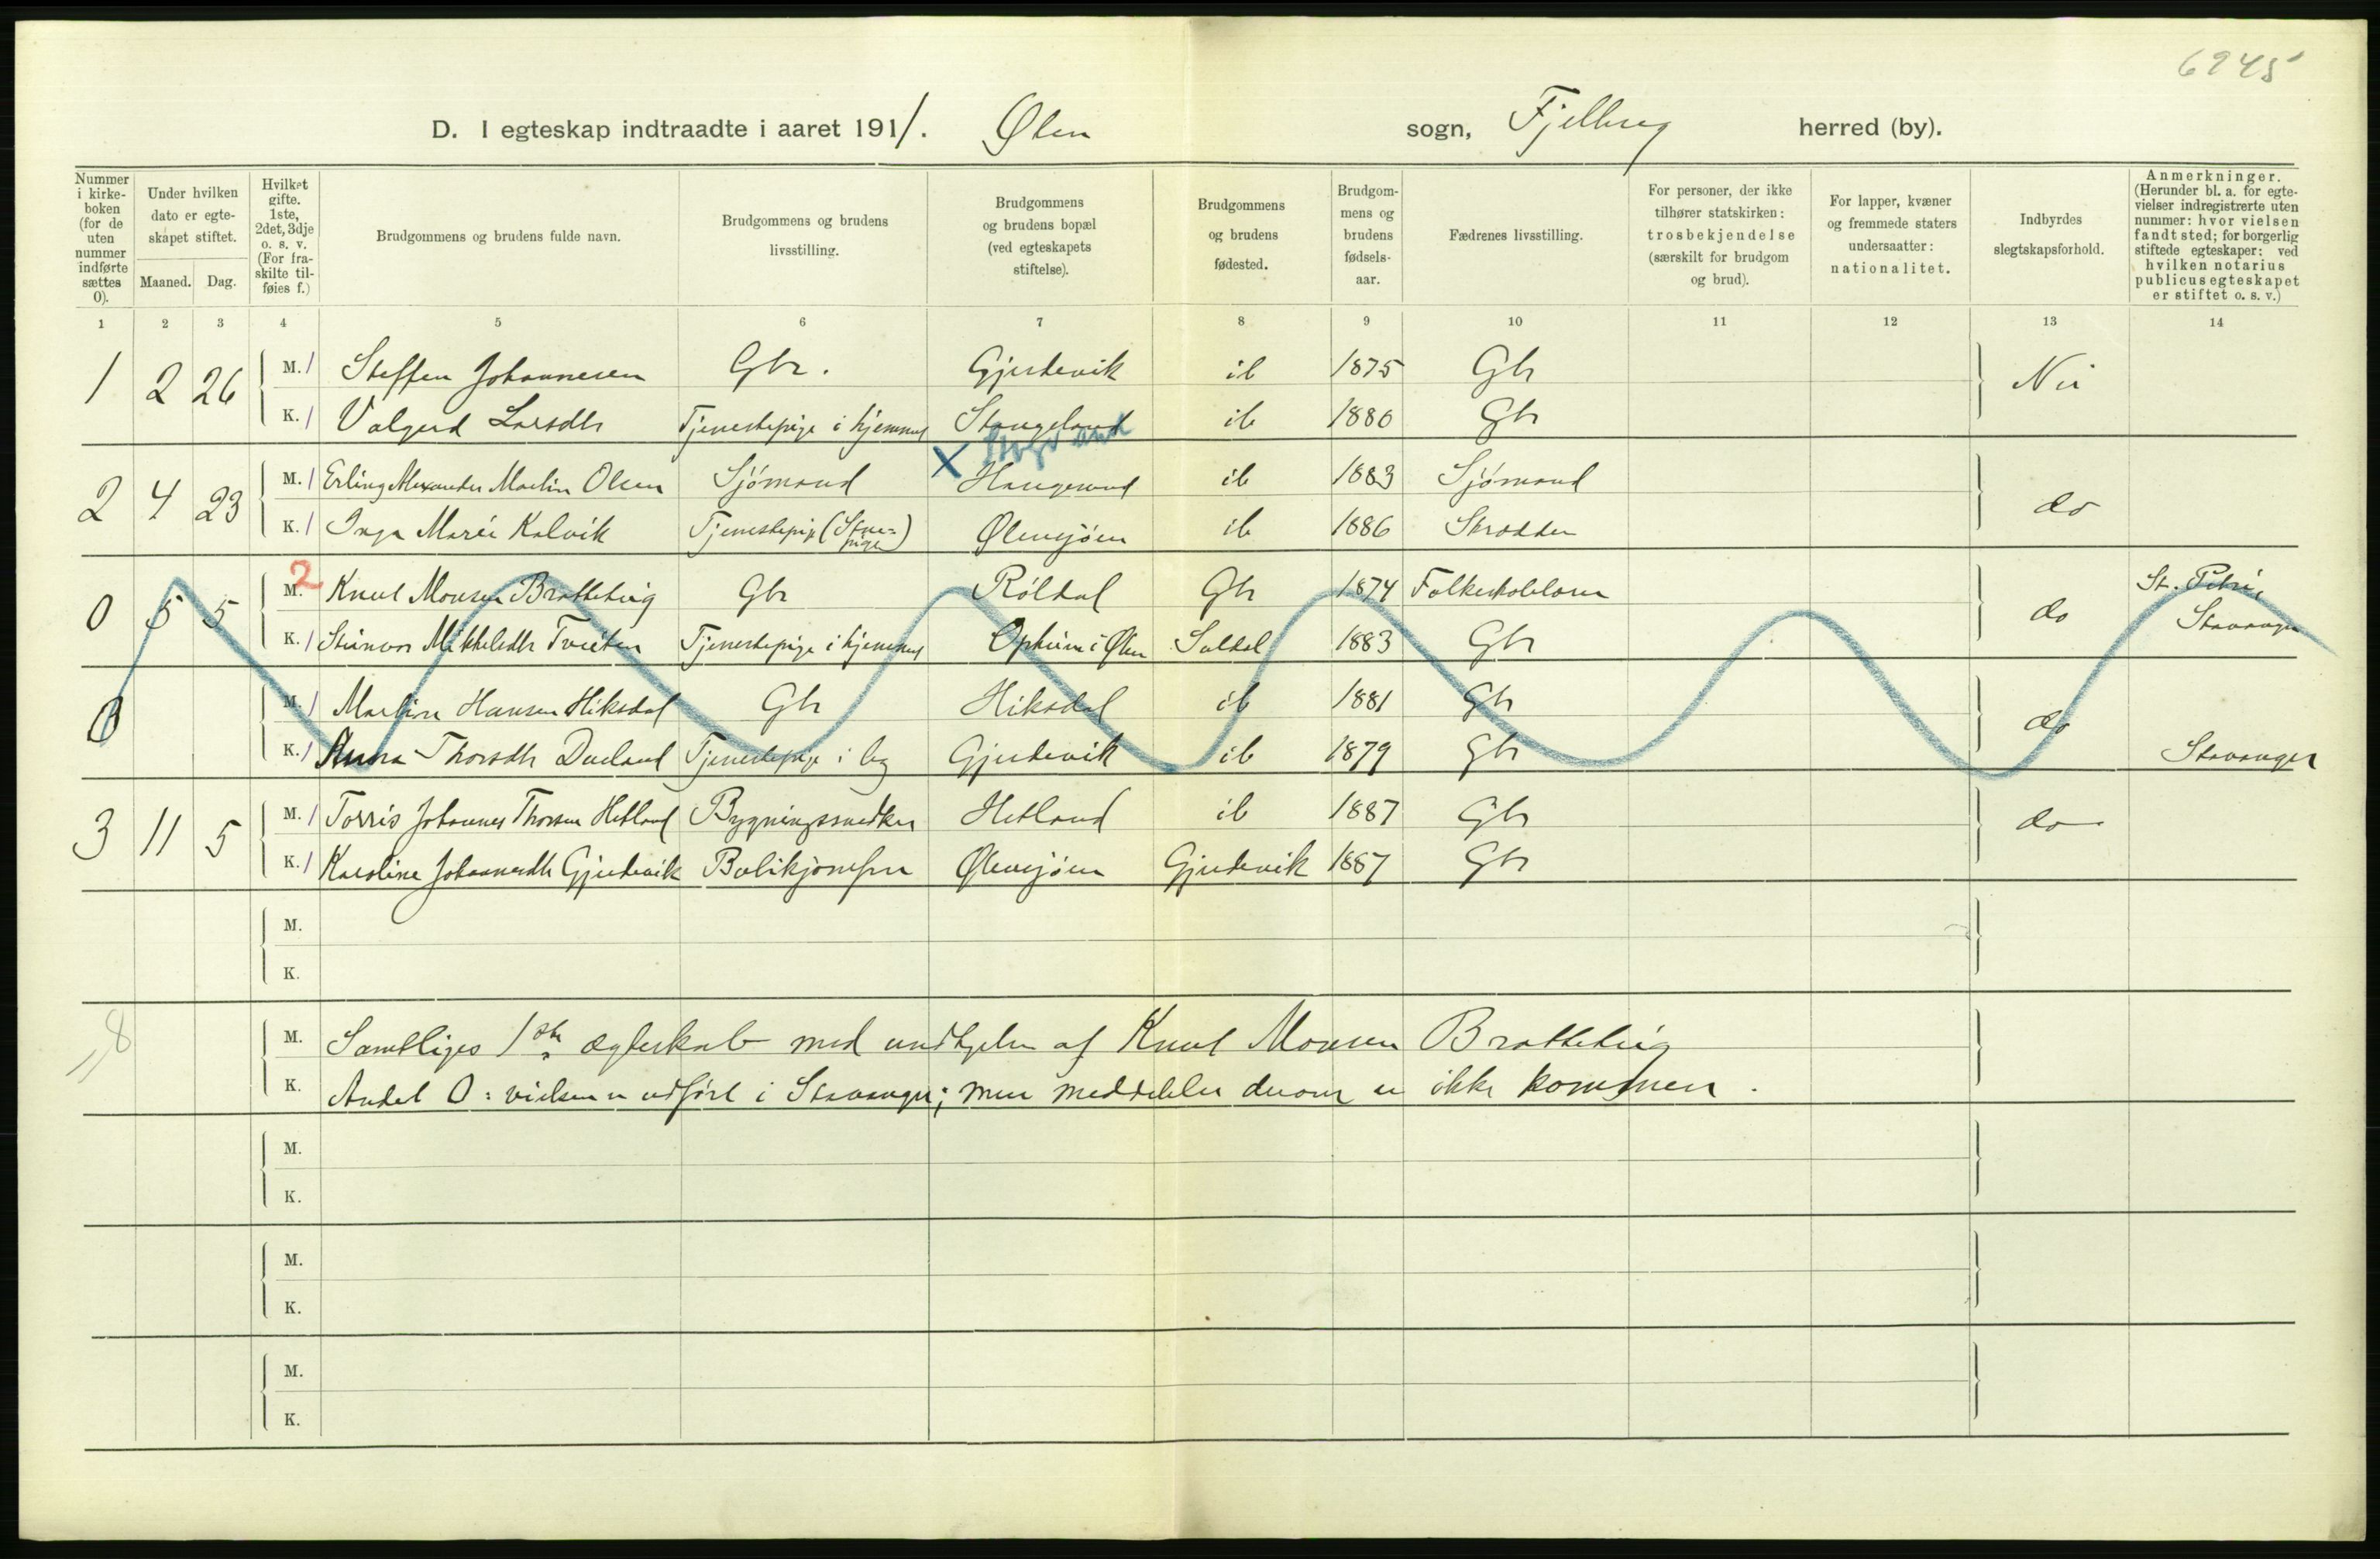 6245
D. I egteskap indtraadte i aaret 1911. Ølen sogn, Fjelberg herred (by).
Nummer i kirke-boken (for de uten nummer indførte sættes 0).
Under hvilken dato er egte-skapet stiftet.
Maaned. Dag.
Hvilket gifte. 1ste, 2det, 3dje o. s. v. (For fra-skilte til-føies f.)
Brudgommens og brudens fulde navn.
Brudgommens og brudens livsstilling.
Brudgommens og brudens bopæl (ved egteskapets stiftelse).
Brudgommens og brudens fødested.
Brudgom-mens og brudens fødsels-aar.
Fædrenes livsstilling.
For personer, der ikke tilhører statskirken: trosbekjendelse (særskilt for brudgom og brud).
For lapper, kvæner og fremmede staters undersaatter: nationalitet.
Indbyrdes slegtskapsforhold.
Anmerkninger. (Herunder bl. a. for egte-vielser indregistrerte uten nummer: hvor vielsen fandt sted; for borgerlig stiftede egteskaper: ved hvilken notarius publicus egteskapet er stiftet o. s. v.)
1 2 3 4 5 6 7 8 9 10 11 12 13 14
1 2 26 M. 1 Steffen Johannesen Gbr. Gjerdevik ib 1875 Gbr Nei
K. 1 Valgerd Larsdtr Tjenestepige i hjemmet Stangeland ib 1880 Gbr
2 4 23 M. 1 Erling Alexander Martin Olsen Sjömand X Haugesund ib 1883 Sjömand do
K. 1 Inga Marie Kalvik Tjenestepige (Stuepige) Ølensjöen ib 1886 Skrædder
0 5 5 M. 2 Knut Monsen Bratteteig Gbr Röldal Gbr 1874 Folkeskolelærer do St. Petri, Stavanger
K. 1 Steinvor Mikkelsdtr Tveiten Tjenestepige i hjemmet Opheim i Ølen Suldal 1883 Gbr
0 M. 1 Martin Hansen Hiksdal Gbr Hiksdal ib 1881 Gbr do
K. 1 Anna Thorsdtr Dueland Tjenestepige i by Gjerdevik ib 1879 Gbr Stavanger
3 11 5 M. 1 Torris Johannes Thorsen Hetland Bygningssnedker Hetland ib 1887 Gbr do
K. 1 Karoline Johannesdtr Gjerdevik Butikjomfru Ølensjöen Gjerdevik 1887 Gbr
M.
K.
M. Samtliges 1ste ægteskab med undtagelse af Knut Monsen Bratteteig
K. Andet 0: vielsen er udført i Stavanger; men meddelelse derom er ikke kommen.
M.
K.
M.
K.
M.
K.